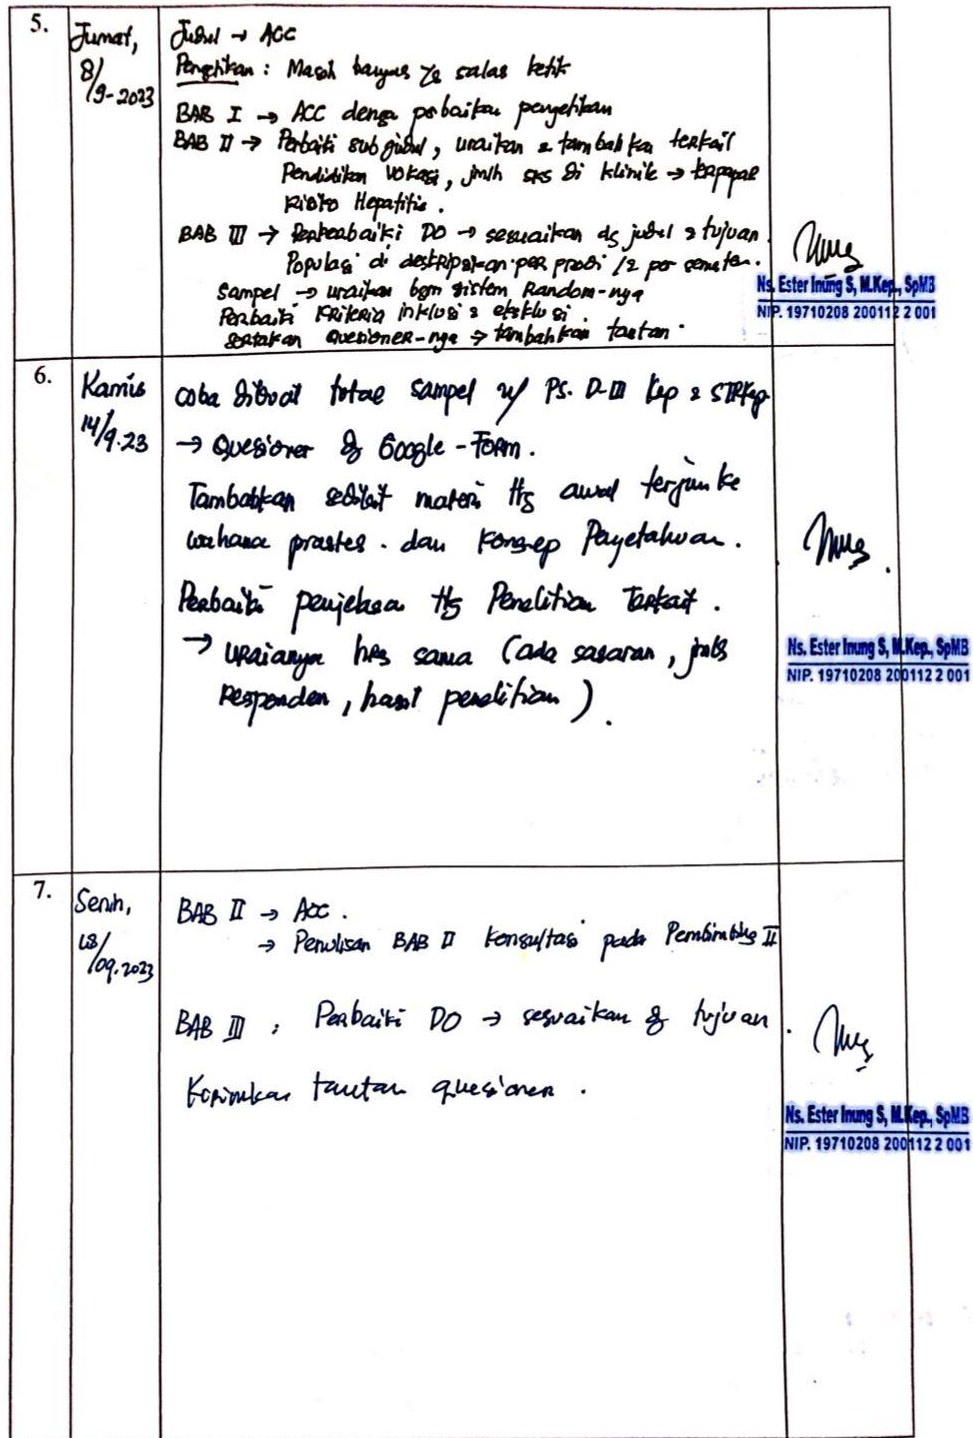 5.
Jumat,
8/9-2023
Judul → ACC
Pengetikan : Masih banyak yg salah ketik
BAB I → ACC dengan perbaikan pengetikan
BAB II → Perbaiki sub judul, uraikan & tambahkan terkait
Pendidikan Vokasi, jmlh sks di klinik → terpapar
Risiko Hepatitis.
BAB III → DO → sesuaikan dg judul & tujuan.
Populasi di deskripsikan per prodi /2 per semester.
Sampel → uraikan bgm sistem Random-nya
Perbaiki kriteria inklusi & eksklusi.
Sertakan Quesioner-nya → tambahkan tautan.
Ns. Ester Inung S, M.Kep., SpMB
NIP. 19710208 200112 2 001
6.
Kamis
14/9.23
coba dibuat total sampel u/ PS. D-III Kep & STRKep
→ Quesioner dg Google-Form.
Tambahkan sedikit materi ttg awal terjun ke
wahana praktek. dan konsep Pengetahuan.
Perbaiki penjelasan ttg Penelitian Terkait.
→ uraianya hrs sama (ada sasaran, jmlh
Responden, hasil penelitian).
Ns. Ester Inung S, M.Kep., SpMB
NIP. 19710208 200112 2 001
7.
Senin,
18/09.2023
BAB II → ACC.
→ Penulisan BAB II konsultasi pada Pembimbing II
BAB III : Perbaiki DO → sesuaikan dg tujuan.
Kirimkan tautan quesioner.
Ns. Ester Inung S, M.Kep., SpMB
NIP. 19710208 200112 2 001